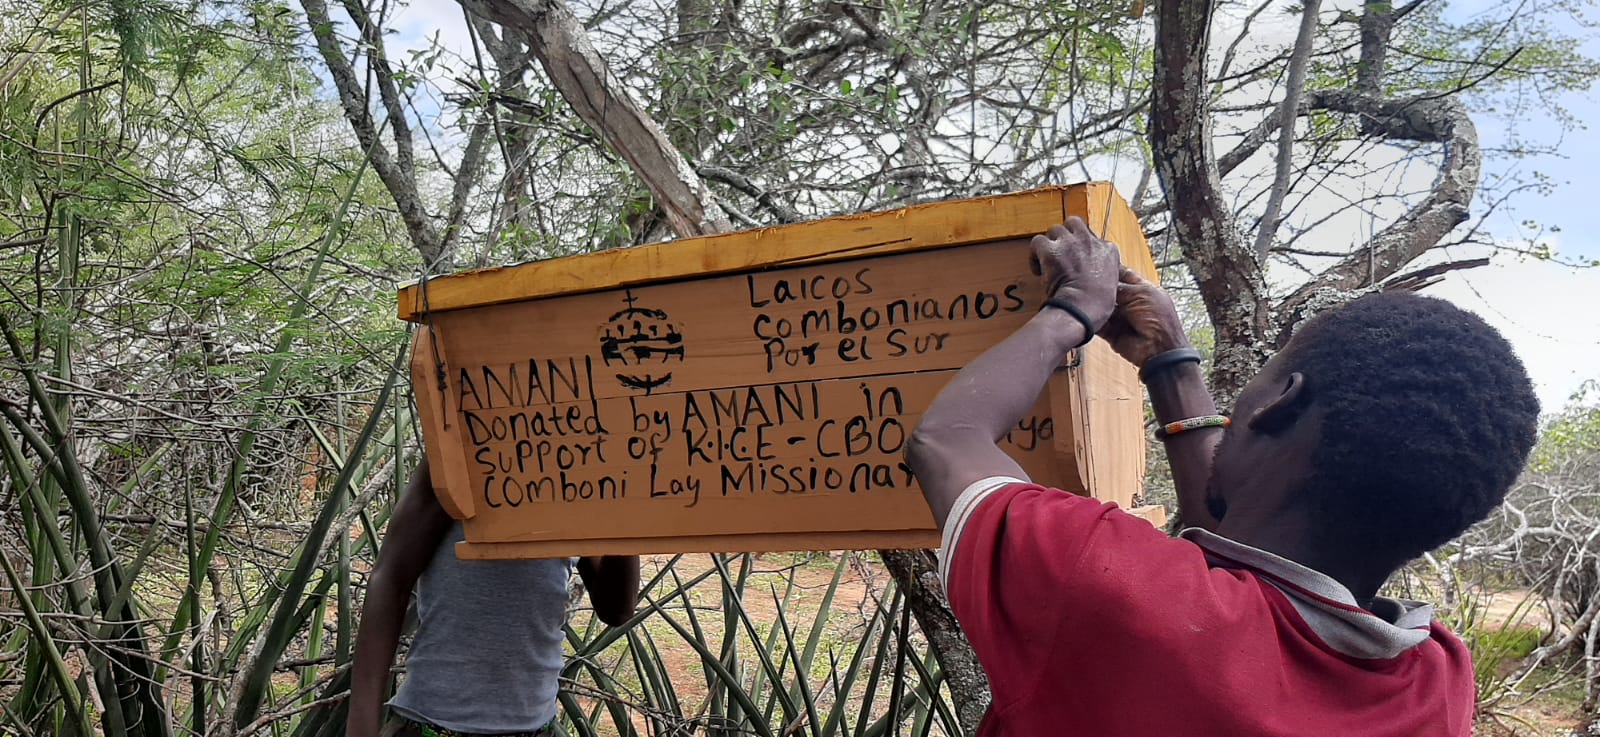 Laicos
combonianos
Por el Sur
AMANI
Donated by AMANI in
Support of K.I.C.E - CBO
Comboni Lay Missionar